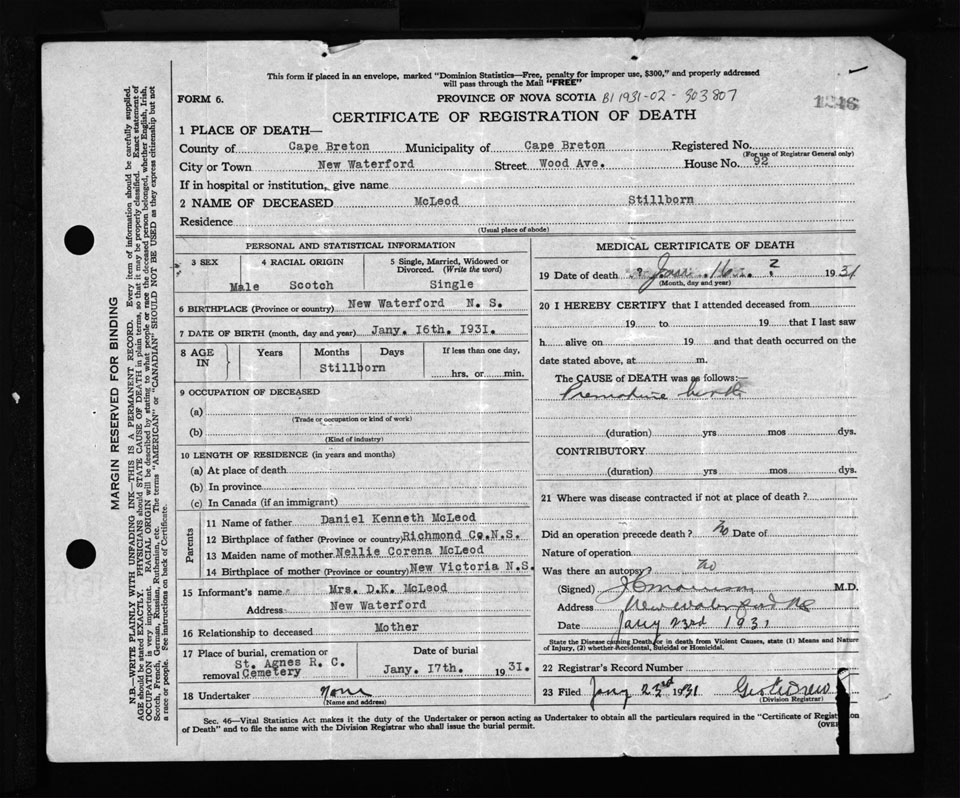 This form if placed in an envelope, marked "Dominion Statistics—Free, penalty for improper use, $300," and properly addressed
will pass through the Mail "FREE"
FORM 6.
PROVINCE OF NOVA SCOTIA B1 1931-02-303807
1246
CERTIFICATE OF REGISTRATION OF DEATH
1 PLACE OF DEATH—
County of Cape Breton Municipality of Cape Breton Registered No.
(For use of Registrar General only)
City or Town New Waterford Street Wood Ave. House No. 92
If in hospital or institution, give name
2 NAME OF DECEASED McLeod Stillborn
Residence
(Usual place of abode)
PERSONAL AND STATISTICAL INFORMATION
3 SEX 4 RACIAL ORIGIN 5 Single, Married, Widowed or
Divorced. (Write the word)
Male Scotch Single
6 BIRTHPLACE (Province or country) New Waterford N. S.
7 DATE OF BIRTH (month, day and year) Jany. 16th. 1931.
8 AGE IN Years Months Days If less than one day,
Stillborn
hrs. or min.
9 OCCUPATION OF DECEASED
(a)
(Trade or occupation or kind of work)
(b)
(Kind of industry)
10 LENGTH OF RESIDENCE (in years and months)
(a) At place of death
(b) In province
(c) In Canada (if an immigrant)
Parents
11 Name of father Daniel Kenneth McLeod
12 Birthplace of father (Province or country) Richmond Co.N.S.
13 Maiden name of mother Nellie Corena McLeod
14 Birthplace of mother (Province or country) New Victoria N.S.
15 Informant's name Mrs. D.K. McLeod
Address New Waterford
16 Relationship to deceased Mother
17 Place of burial, cremation or Date of burial
removal St. Agnes R. C.
Cemetery Jany. 17th. 1931.
18 Undertaker None
(Name and address)
MEDICAL CERTIFICATE OF DEATH
19 Date of death ? Jan. 16 ? 1931
(Month, day and year)
20 I HEREBY CERTIFY that I attended deceased from
19 to 19 that I last saw
h alive on 19 and that death occurred on the
date stated above, at m.
The CAUSE of DEATH was as follows:—
Premature birth
(duration) yrs mos dys.
CONTRIBUTORY
(duration) yrs mos dys.
21 Where was disease contracted if not at place of death?
Did an operation precede death? No Date of
Nature of operation
Was there an autopsy No
(Signed) M.D.
Address New Waterford NS
Date Jany 23rd 1931
State the Disease causing Death, or in death from Violent Causes, state (1) Means and Nature
of Injury, (2) whether Accidental, Suicidal or Homicidal.
22 Registrar's Record Number
23 Filed Jany 23rd 1931
(Division Registrar)
Sec. 46—Vital Statistics Act makes it the duty of the Undertaker or person acting as Undertaker to obtain all the particulars required in the "Certificate of Registration
of Death" and to file the same with the Division Registrar who shall issue the burial permit. (OVER
MARGIN RESERVED FOR BINDING
N.B.—WRITE PLAINLY WITH UNFADING INK—THIS IS A PERMANENT RECORD. Every item of information should be carefully supplied.
AGE should be stated EXACTLY. PHYSICIANS should STATE CAUSE OF DEATH in plain terms, so that it may be properly classified. Exact statement of
OCCUPATION is very important. RACIAL ORIGIN will be described by stating to what people or race the deceased person belonged, whether English, Irish,
Scotch, French, German, Russian, Ruthenian, etc. The terms "AMERICAN" or "CANADIAN" SHOULD NOT BE USED as they express citizenship but not
a race or people. See instructions on back of Certificate.